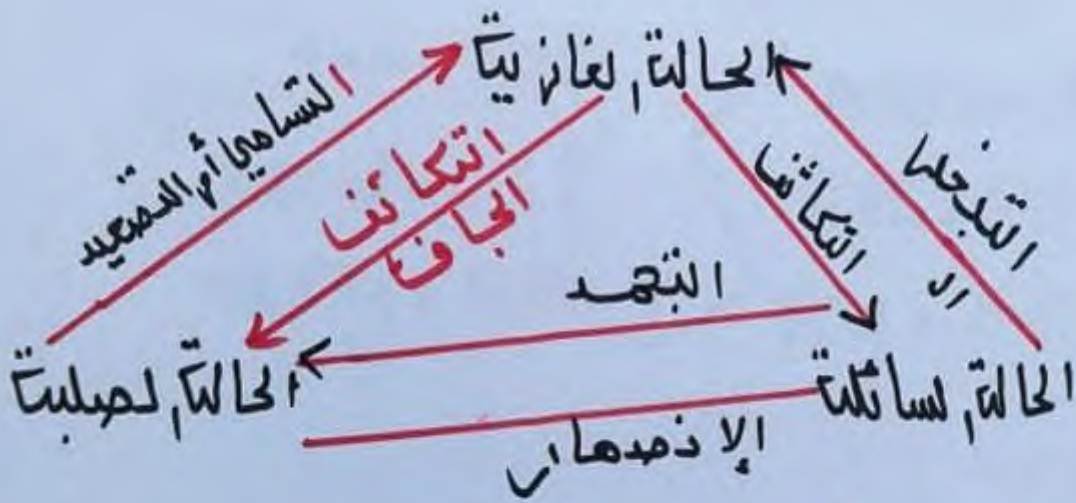 الحالة الغازية
التسامي أم التصعيد
التكاثف
الجاف
التكاثف
التبخر
ال
التجمد
الحالة الصلبة
الحالة السائلة
الإنصهار